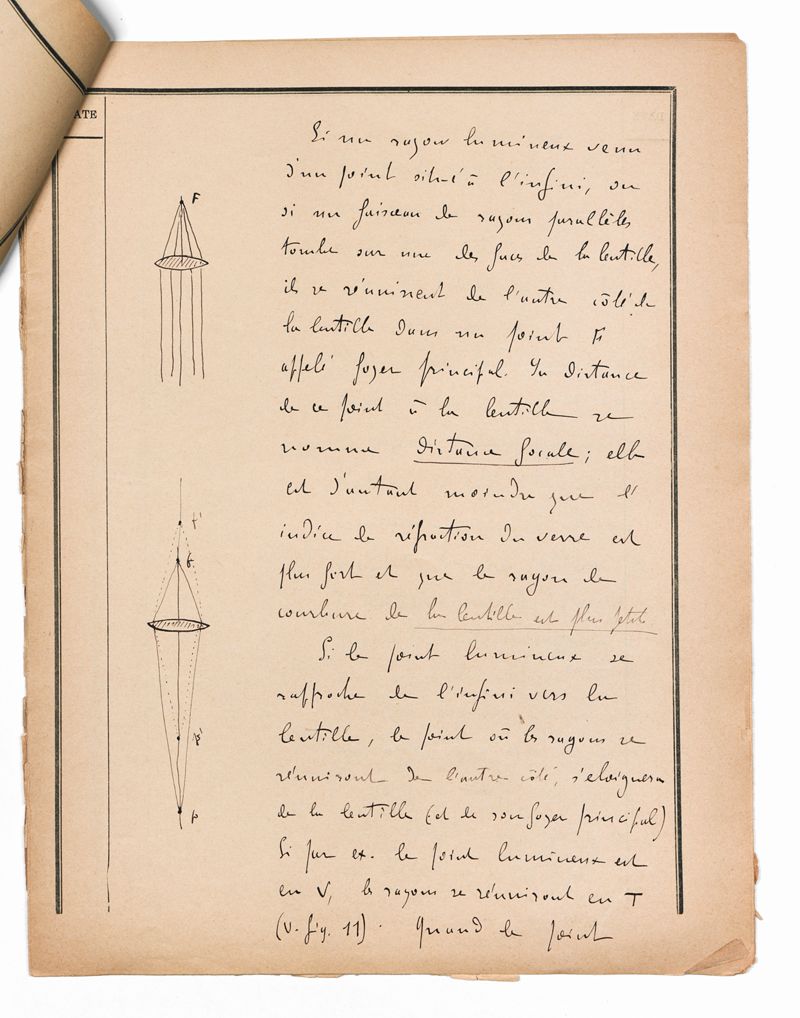 ATE
Si un rayon lumineux venu
d'un point situé à l'infini, ou
si un faisceau de rayons parallèles
tombe sur une des faces de la lentille,
ils se réunissent de l'autre côté de
la lentille dans un point F
appelé foyer principal. La distance
de ce point à la lentille se
nomme distance focale; elle
est d'autant moindre que l'
indice de réfraction du verre est
plus fort et que le rayon de
courbure de la lentille est plus petit
Si le point lumineux se
rapproche de l'infini vers la
lentille, le point où les rayons se
réuniront de l'autre côté, s'eloignera
de la lentille (et de son foyer principal)
Si par ex. le point lumineux est
en V, les rayons se réuniront en T
(V. fig. 11). Quand le point
F
t'
t
p'
p